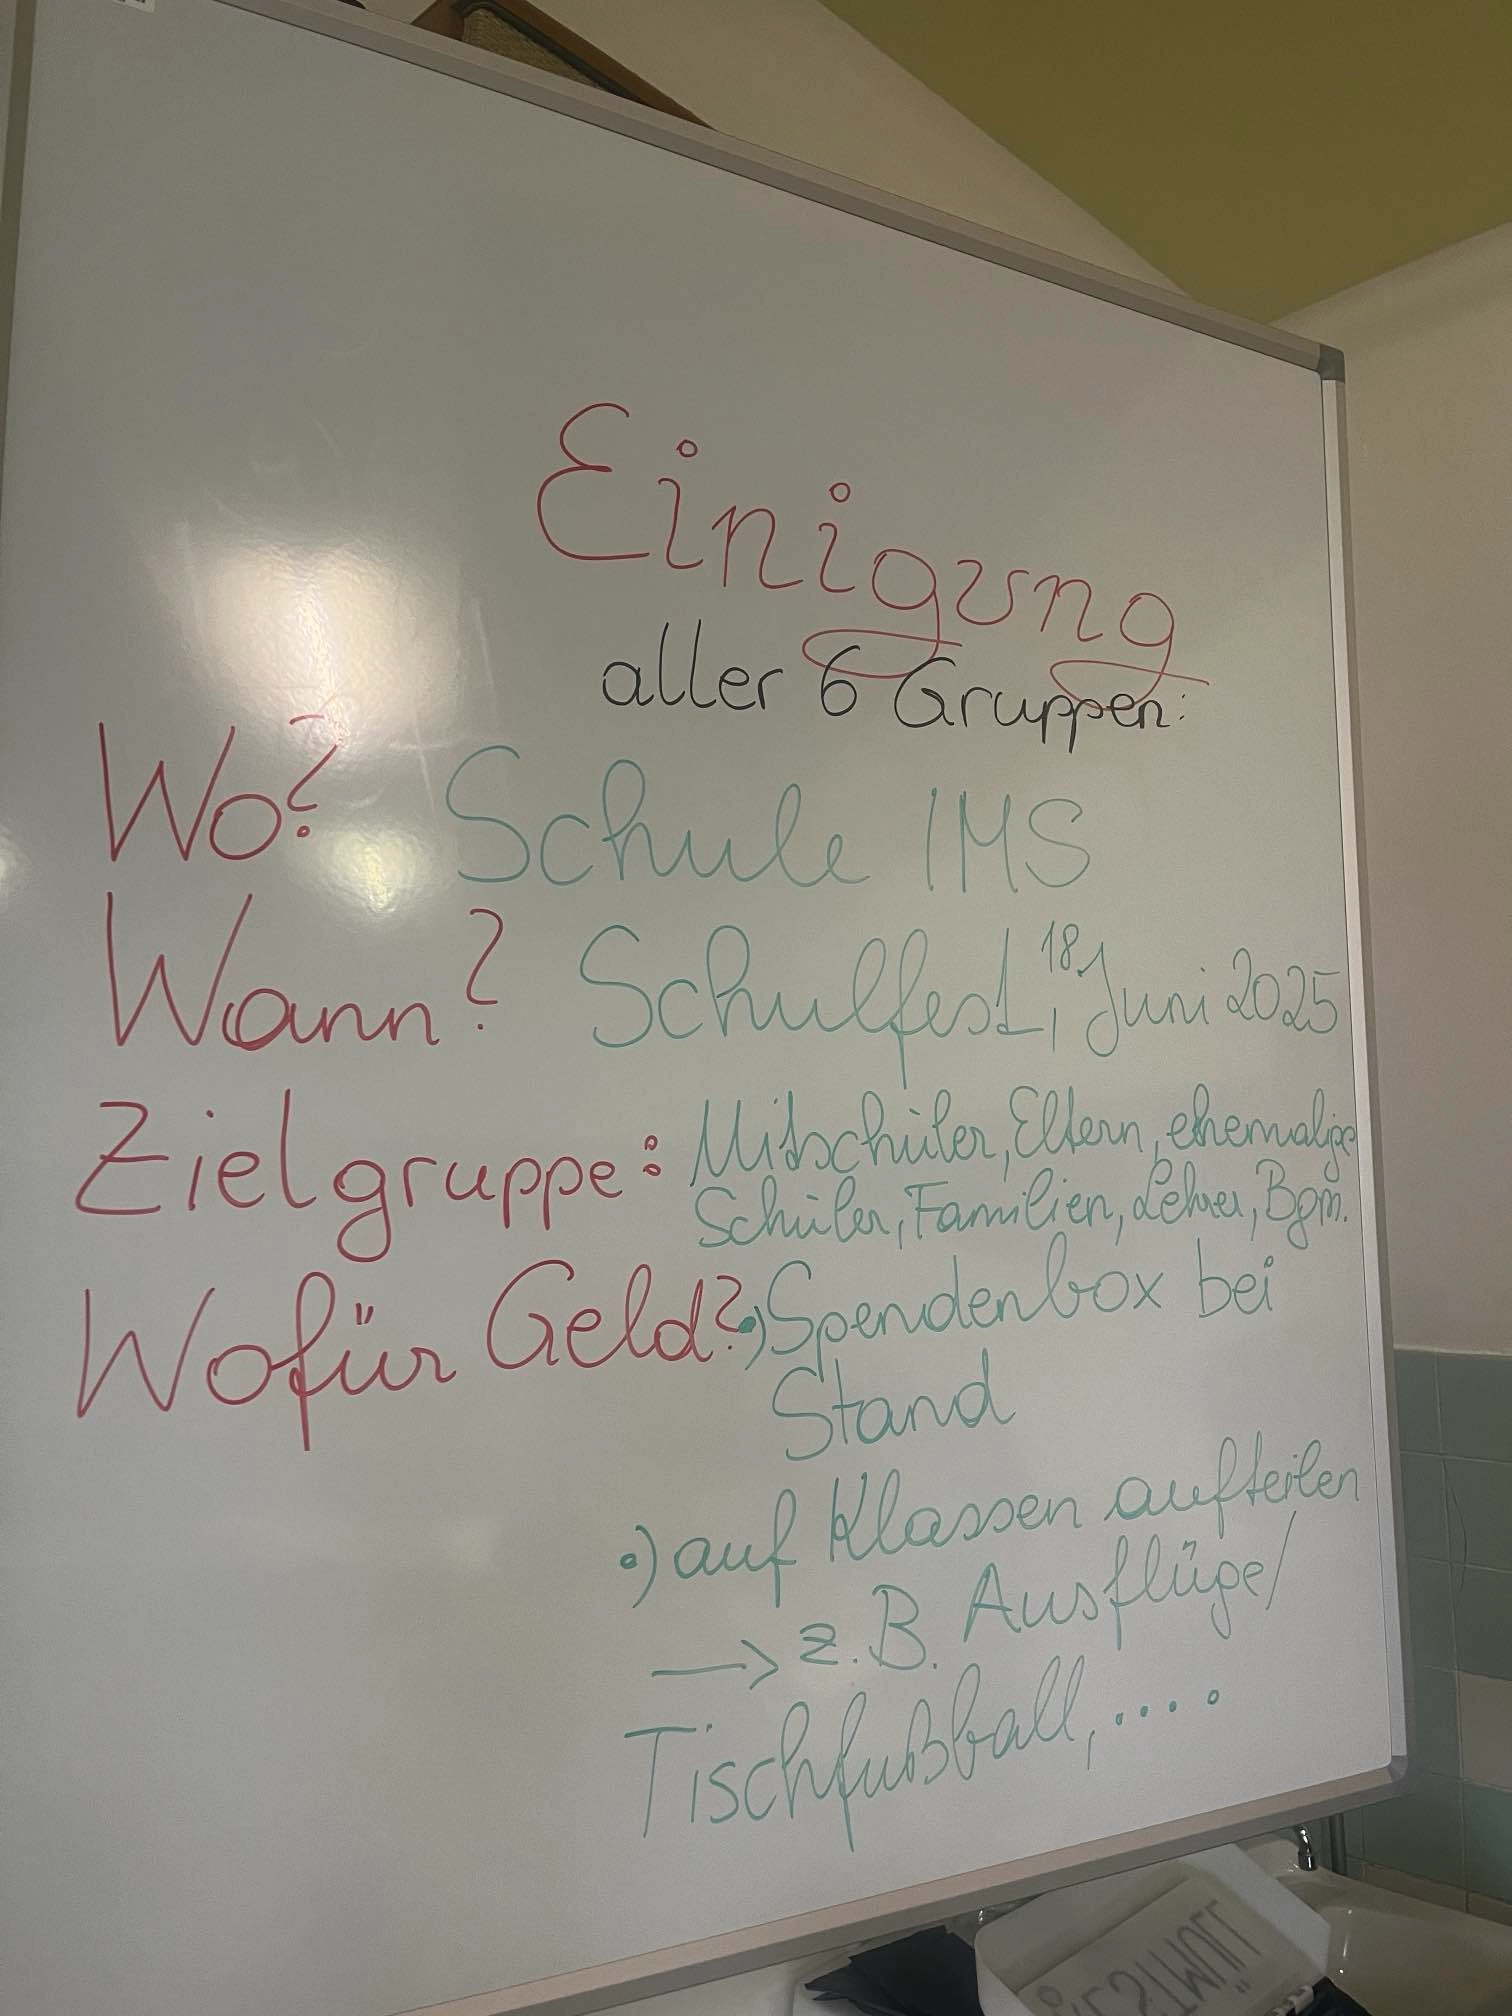 Einigung
aller 6 Gruppen:
Wo? Schule IMS
Wann? Schulfest, 18. Juni 2025
Zielgruppe: Mitschüler, Eltern, ehemalige
Schüler, Familien, Lehrer, Bgm.
Wofür Geld? •) Spendenbox bei
Stand
•) auf Klassen aufteilen
→ z.B. Ausflüge/
Tischfußball, ....
RESTMÜLL